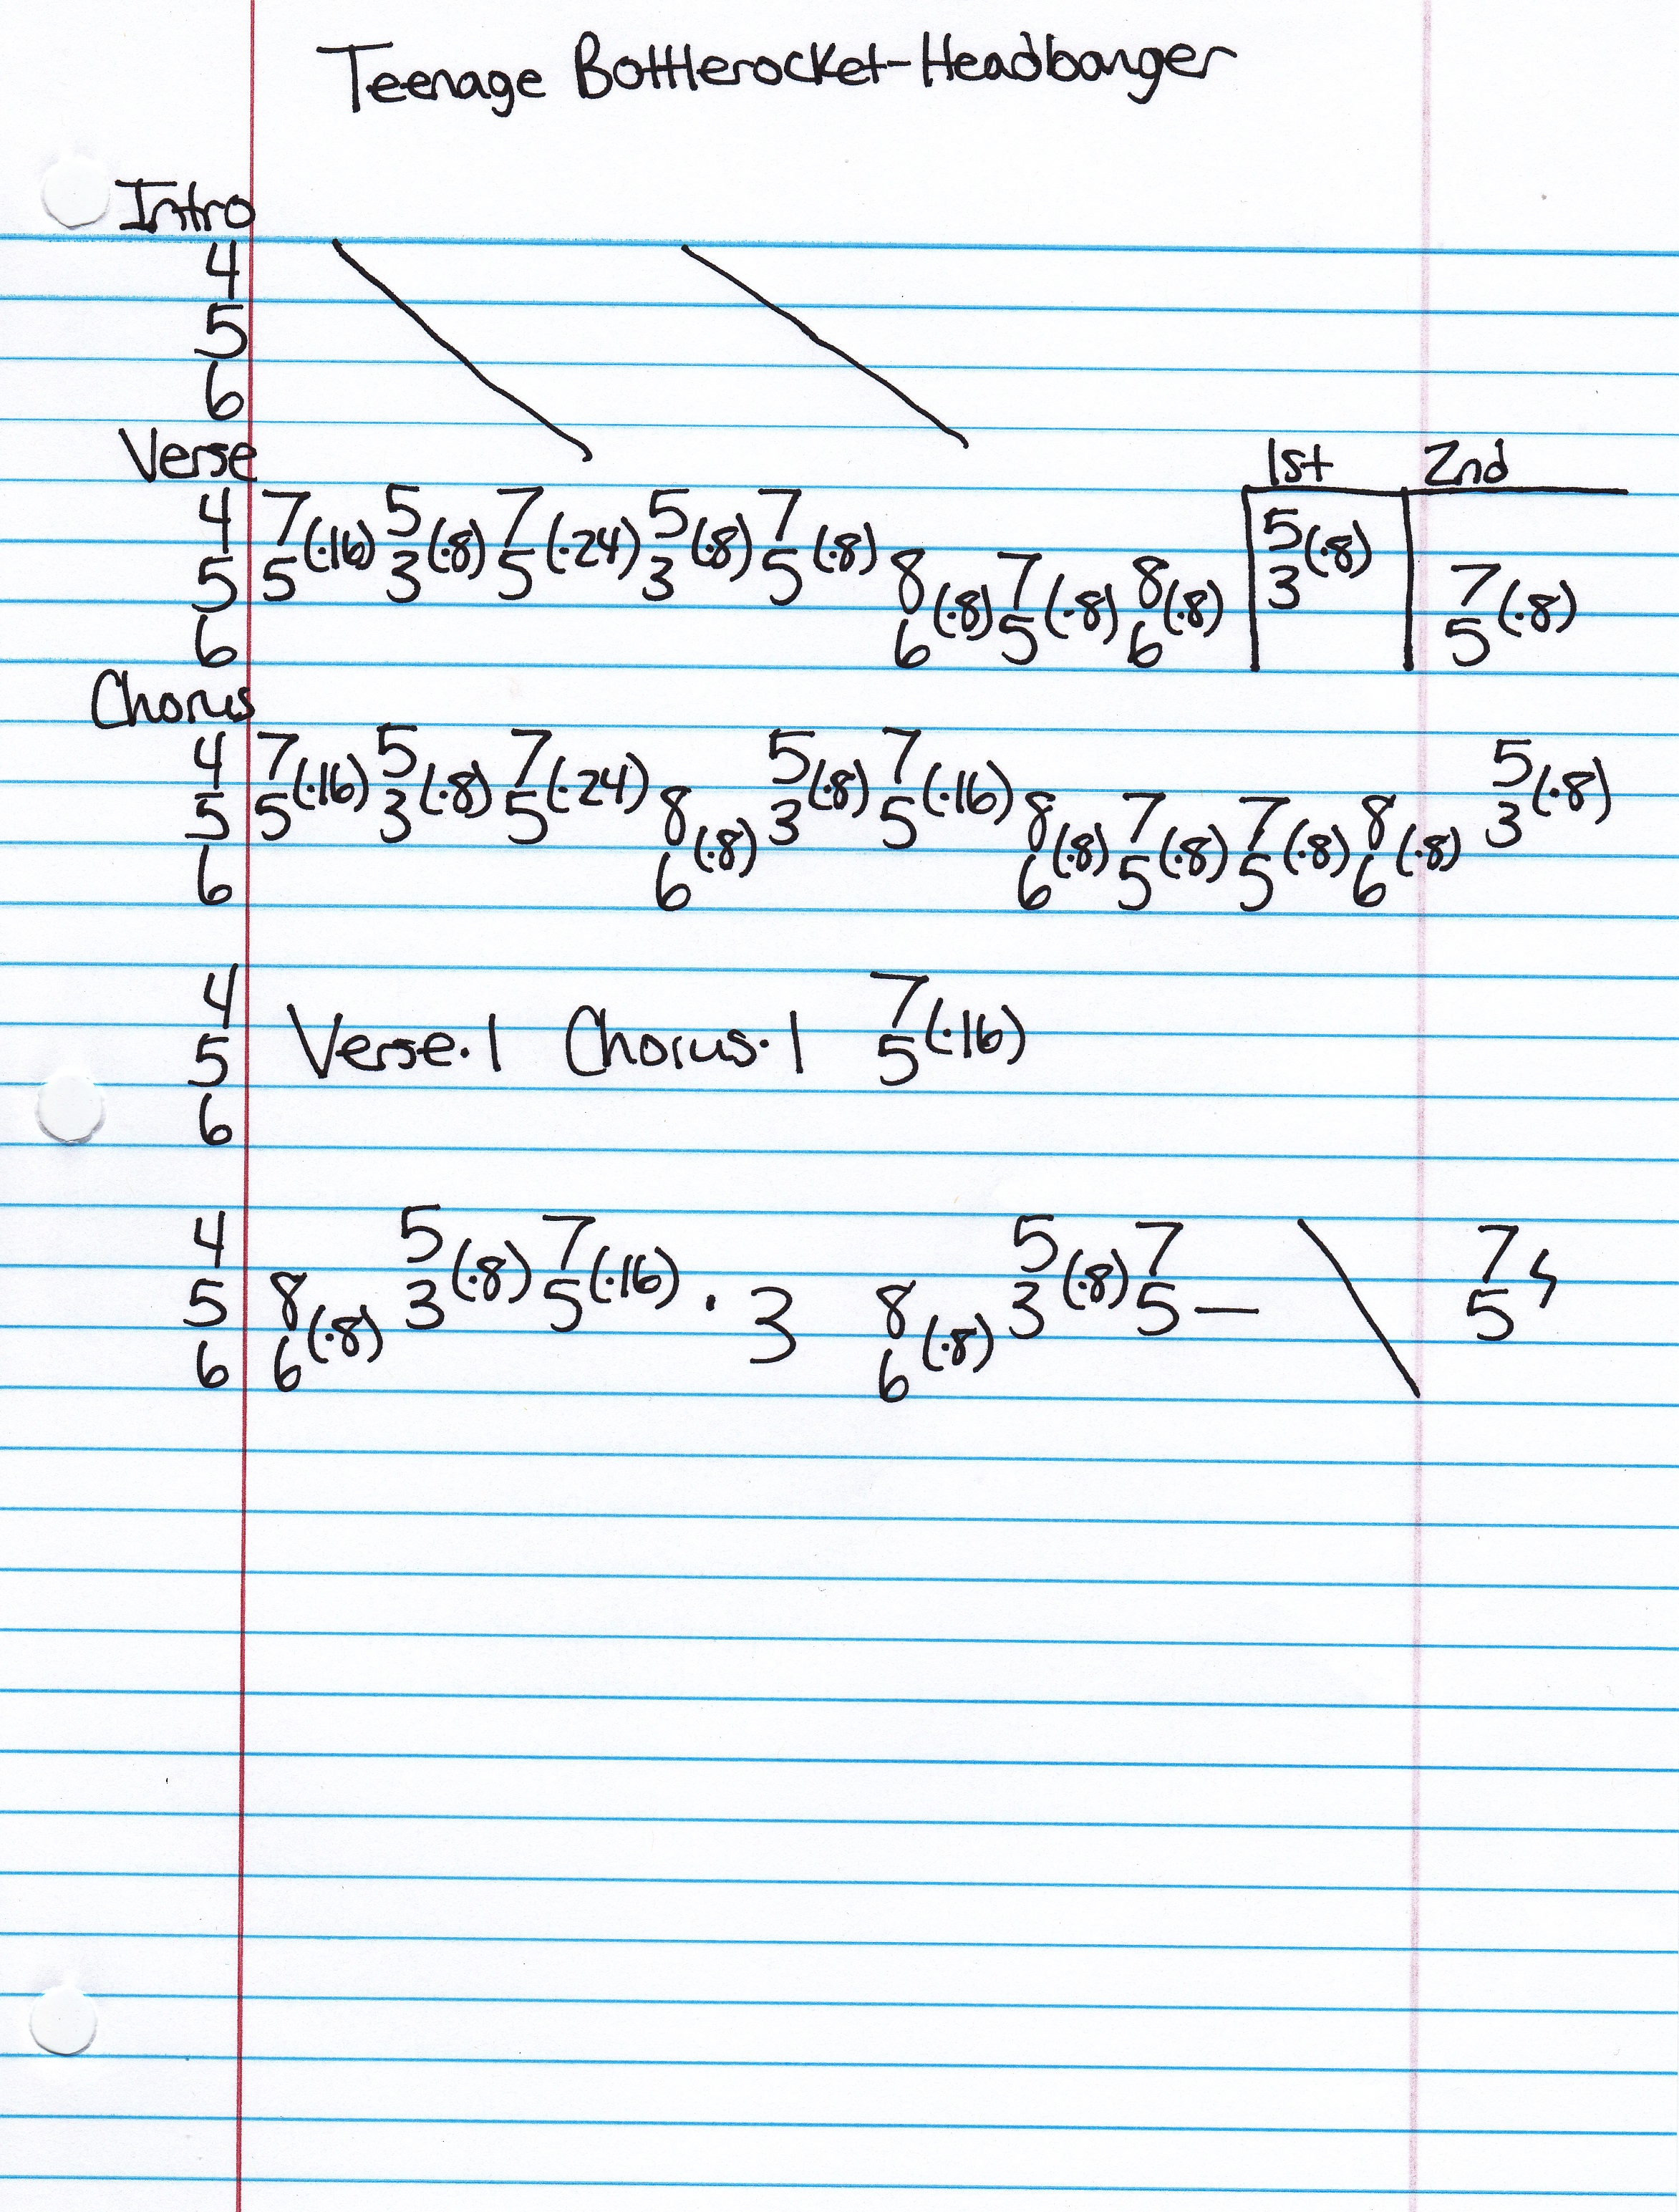 Teenage Bottlerocket-Headbanger
Intro
4
5
6
Verse 1st 2nd
4 7 5 7 5 7 5
(·16) (·8) (·24) (·8) (·8) (·8)
5 5 3 5 3 5 8 7 8 3 7
(·8) (·8) (·8) (·8)
6 6 5 6 5
Chorus
4 7 5 7 5 7 5
(·16) (·8) (·24) (·8) (·16) (·8)
5 5 3 5 8 3 5 8 7 7 8 3
(·8) (·8) (·8) (·8) (·8)
6 6 6 5 5 6
4 7
5 Verse·1 Chorus·1 5 (·16)
6
4 5 7 5 7 7
(·8) (·16) (·8)
5 8 3 5 · 3 8 3 5 – 5
(·8) (·8)
6 6 6